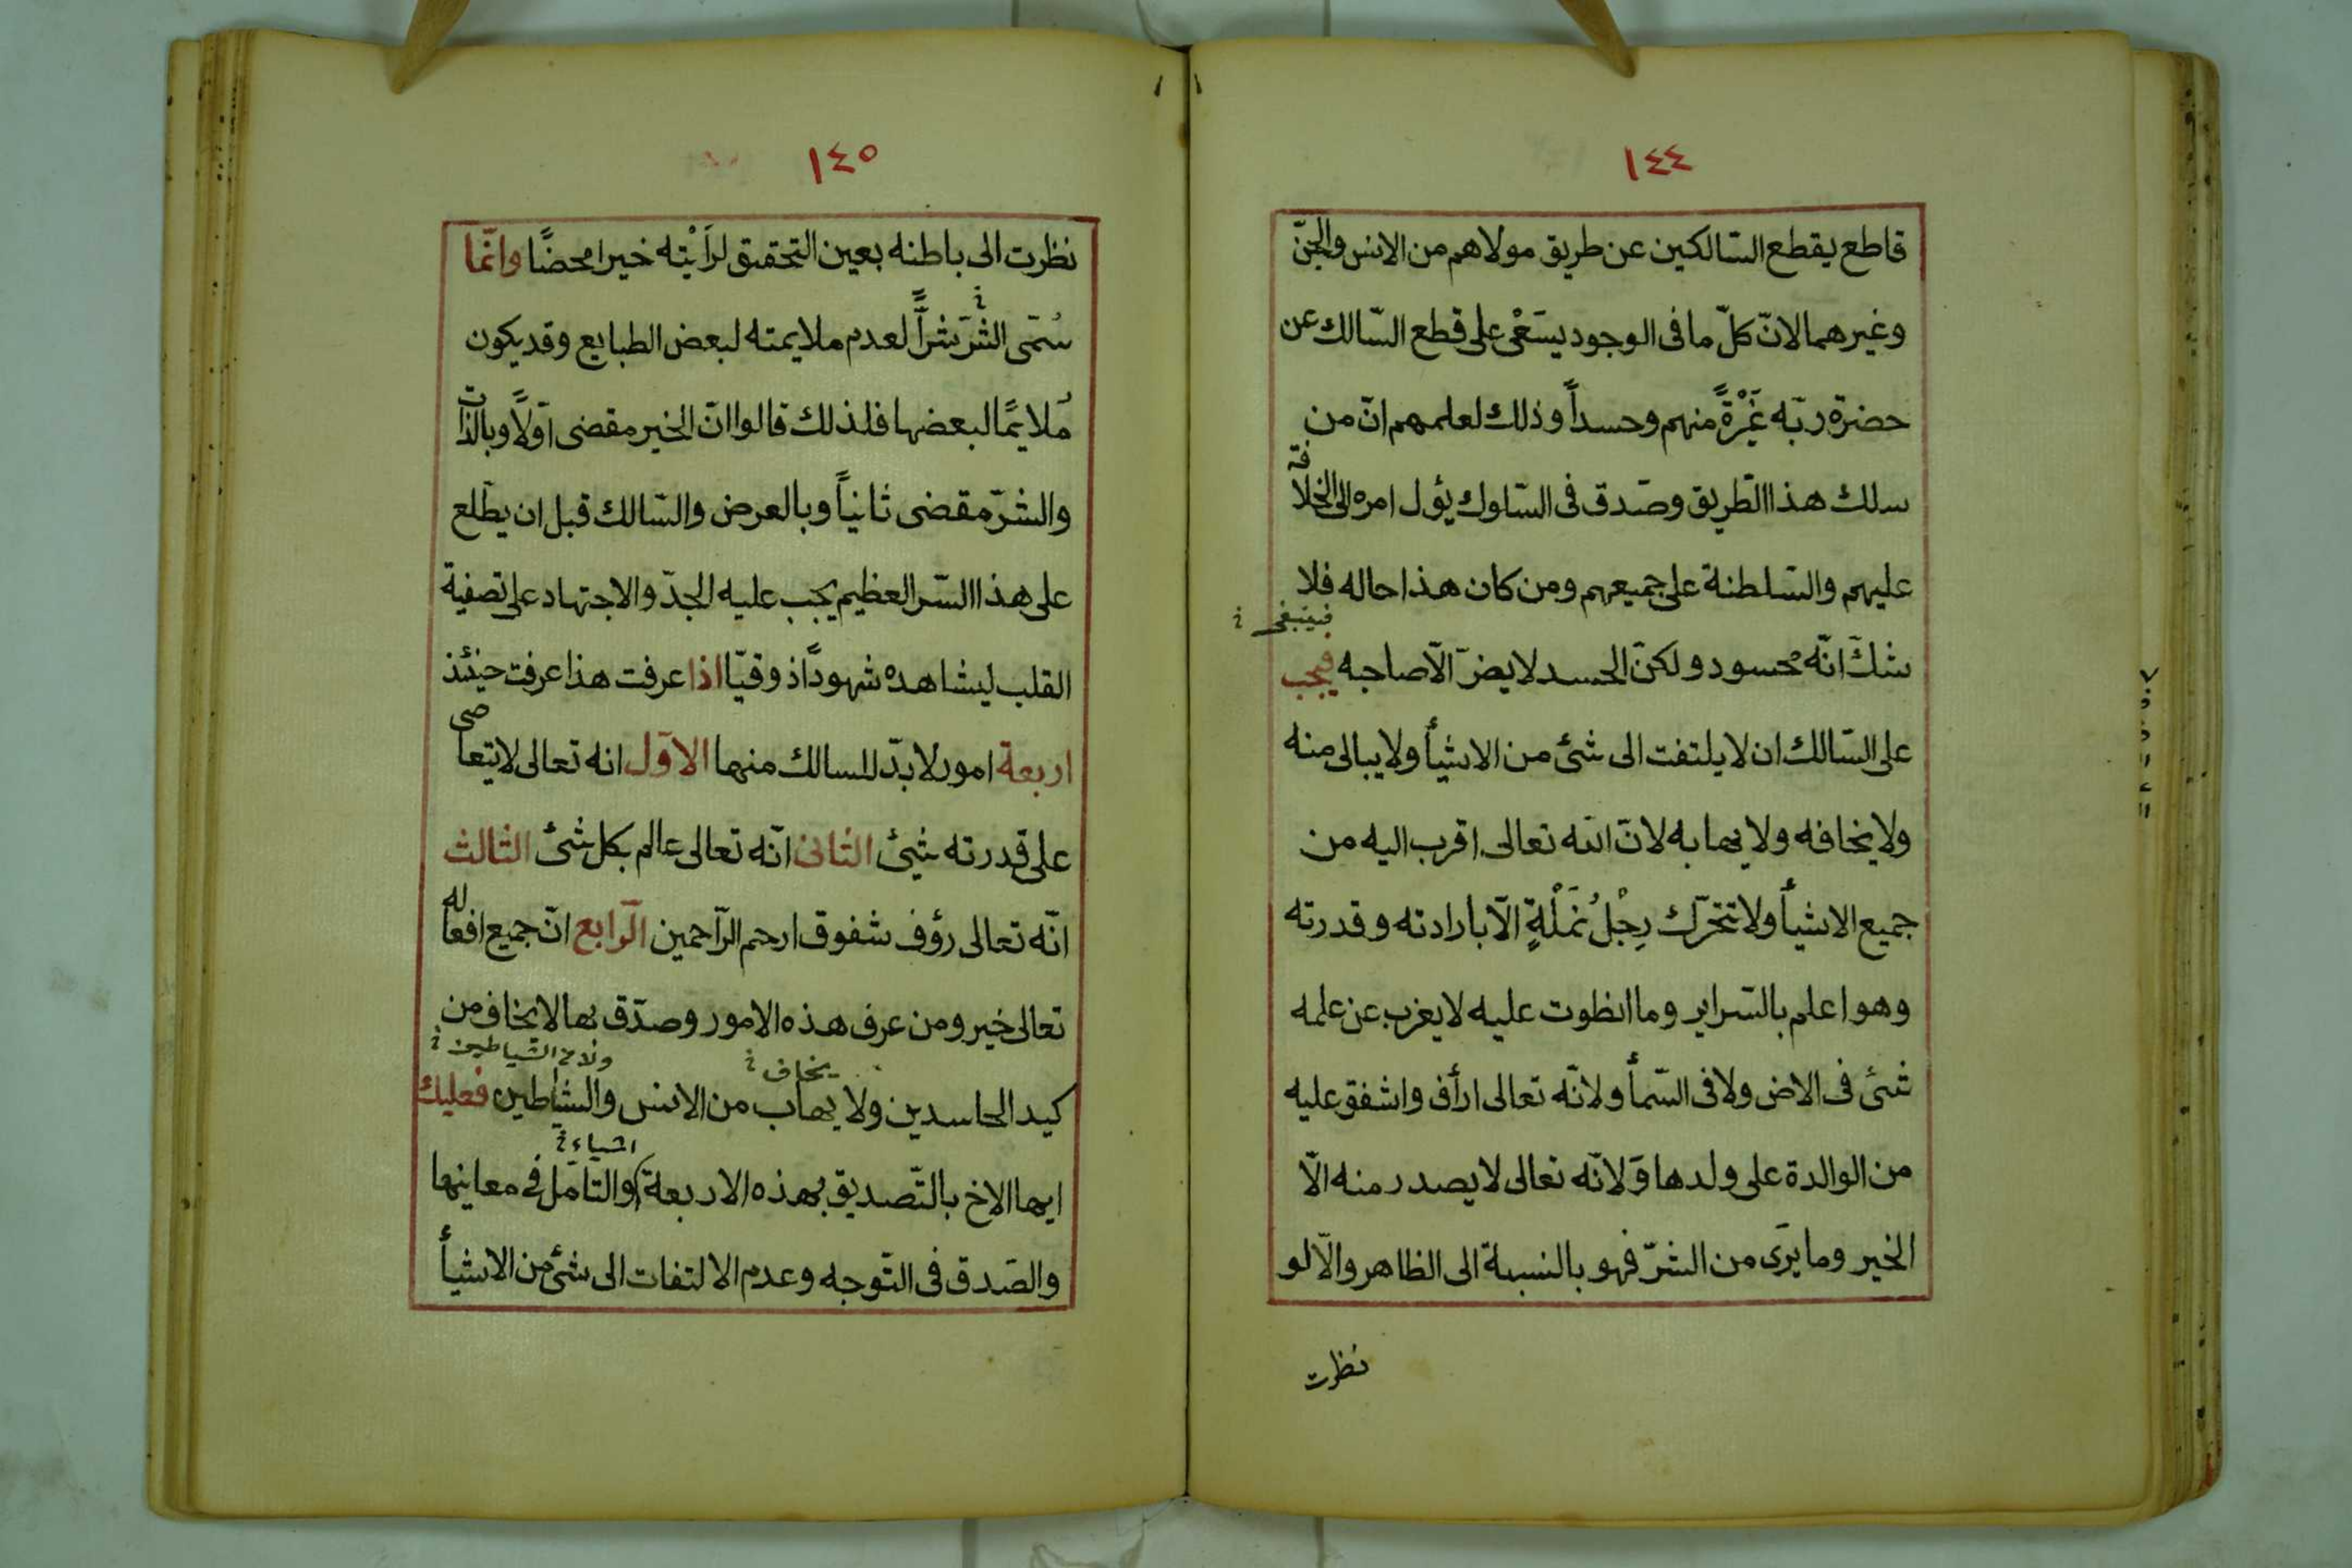 ١٤٤
قاطع يقطع السّالكين عن طريق مولاهم من الانس والجنّ
وغيرهما لانّ كلّ ما فى الوجود يسَعْى على قطع السّالك عن
حضرة ربّه غَيْرَةً منهم وحسداً وذلك لعلمهم انّ من
سلك هذا الطّريق وصَدق فى السّلوك يؤل امره الى الخلافة
عليهم والسّلطنة على جميعهم ومن كان هذا حاله فلا
فينبغى
شكَّ انّه محسود ولكنّ الحسد لا يضرّ الّا صاحبه فيجب
على السّالك ان لا يلتفت الى شئ من الاشيأ ولا يبالى منه
ولا يخافه ولا يهابه لانّ الله تعالى اقرب اليه من
جميع الاشيأ ولا تتحرّك رِجْلُ نَمْلَةٍ الّا بأرادته وقدرته
وهو اعلم بالسّراير وما انطوت عليه لا يغرب عن علمه
شئ فى الاض ولا فى السّمأ ولانّه تعالى ارأف واشفق عليه
من الوالدة على ولدها وَلانّه تعالى لا يصدر منه الّا
الخير وما يرَى من الشرّ فهو بالنسبة الى الظاهر والّا لو
نظرت
١٤٥
نظرت الى باطنه بعين التحقيق لرَأَيْته خيرا محضًا وانّما
سُمّى الشّرَ شرّاً لعدم ملايمته لبعض الطبايع وقد يكون
مُلايمًا لبعضها فلذلك قالوا انّ الخير مقضى اوّلاً وبالذات
والشرّ مقضى ثانياً وبالعرض والسّالك قبل ان يطّلع
على هذا السّر العظيم يجب عليه الجدّ والاجتهاد على تصفية
القلب ليشاهده شهودًا ذوقيّا اذا عرفت هذا عرفت حينئذ
اربعة امور لا بدّ للسالك منها الاوّل انه تعالى لا يتعاصى
على قدرته شئ الثانى انّه تعالى عالم بكل شئ الثالث
انّه تعالى رؤف شفوق ارحم الرّاحمين الرّابع انّ جميع افعاله
تعالى خير ومن عرف هذه الامور وصدّق بها لا يخاف من
يخاف ولا من الشياطين
كيد الحاسدين ولا يهاب من الانس والشياطين فعليك
اشياء
ايها الاخ بالتّصديق بهذه الاربعة والتأمّل فى معانيها
والصَدق فى التّوجه وعدم الالتفات الى شئ من الاشيأ